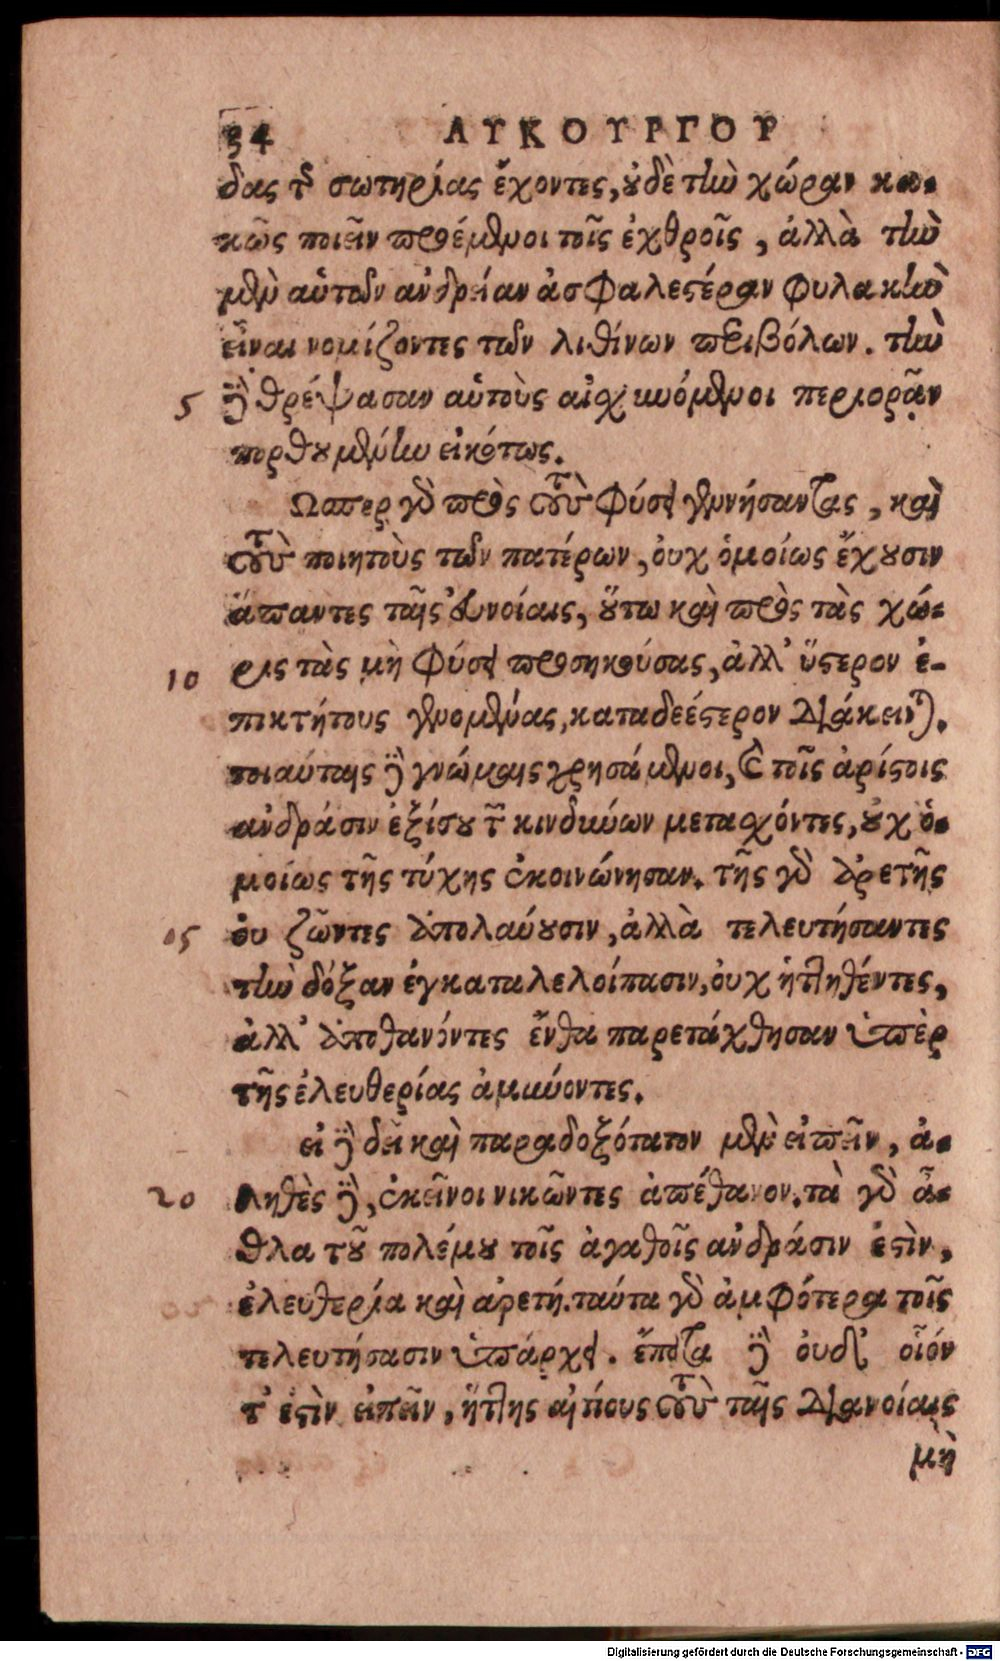 34 ΛΥΚΟΥΡΓΟΥ
δας τῆς σωτηρίας ἔχοντες, οὐδὲ τὴν χώραν κα-
κῶς ποιεῖν προέμενοι τοῖς ἐχθροῖς, ἀλλὰ τὴν
μὲν αὑτῶν ἀνδρείαν ἀσφαλεστέραν φυλακὴν
εἶναι νομίζοντες τῶν λιθίνων περιβόλων. τὴν
5 δὲ θρέψασαν αὑτοὺς αἰσχυνόμενοι περιορᾶν
πορθουμένην εἰκότως.
Ὥσπερ γὰρ πρὸς τοὺς φύσει γεννήσαντας, καὶ
τοὺς ποιητοὺς τῶν πατέρων, οὐχ ὁμοίως ἔχουσιν
ἅπαντες ταῖς εὐνοίαις, οὕτω καὶ πρὸς τὰς χώ-
10 ρας τὰς μὴ φύσει προσηκούσας, ἀλλ' ὕστερον ἐ-
πικτήτους γενομένας, καταδεέστερον διάκεινται.
τοιαύταις δὲ γνώμαις χρησάμενοι, καὶ τοῖς ἀρίστοις
ἀνδράσιν ἐξίσου τῶν κινδύνων μετασχόντες, οὐχ ὁ-
μοίως τῆς τύχης ἐκοινώνησαν. τῆς γὰρ ἀρετῆς
15 οὐ ζῶντες ἀπολαύουσιν, ἀλλὰ τελευτήσαντες
τὴν δόξαν ἐγκαταλελοίπασιν, οὐχ ἡττηθέντες,
ἀλλ' ἀποθανόντες ἔνθα παρετάχθησαν ὑπὲρ
τῆς ἐλευθερίας ἀμύνοντες.
εἰ δὲ δεῖ καὶ παραδοξότατον μὲν εἰπεῖν, ἀ-
20 ληθὲς δὲ, ἐκεῖνοι νικῶντες ἀπέθανον. τὰ γὰρ ἆ-
θλα τοῦ πολέμου τοῖς ἀγαθοῖς ἀνδράσιν ἐστὶν,
ἐλευθερία καὶ ἀρετή. ταῦτα γὰρ ἀμφότερα τοῖς
τελευτήσασιν ὑπάρχει. ἔπειτα δὲ οὐδ' οἷόν
τ' ἐστὶν εἰπεῖν, ἥττης αἰτίους τοὺς ταῖς διανοίαις
μὴ
Digitalisierung gefördert durch die Deutsche Forschungsgemeinschaft - DFG